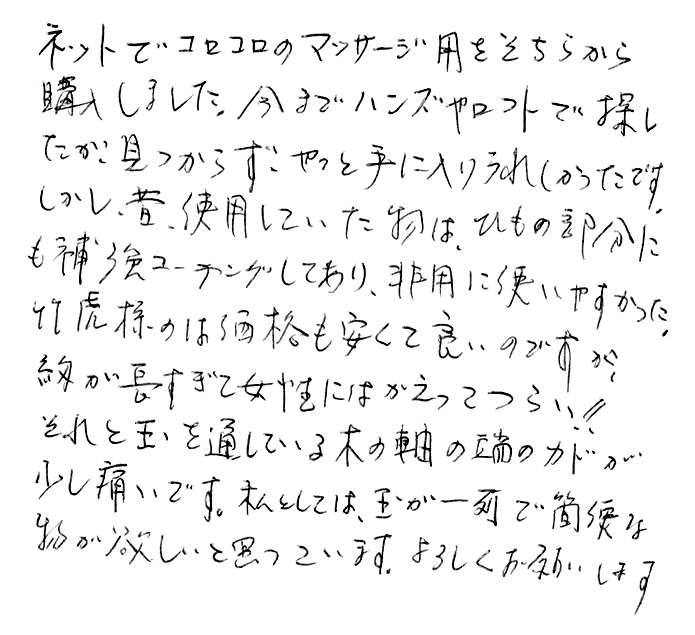 ネットでコロコロのマッサージ用をそちらから
購入しました。今までハンズやロフトで探し
たが、見つからず、やっと手に入りうれしかったです。
しかし、昔、使用していた物は、ひもの部分に
も補強コーチングしてあり、非用に使いやすかった。
竹虎様のは価格も安くて良いのですが、
紐が長すぎて女性にはかえってつらい!!
それと玉を通している木の軸の端のカドが
少し痛いです。私としては、玉が一列で簡便な
物が欲しいと思っています。よろしくお願いします